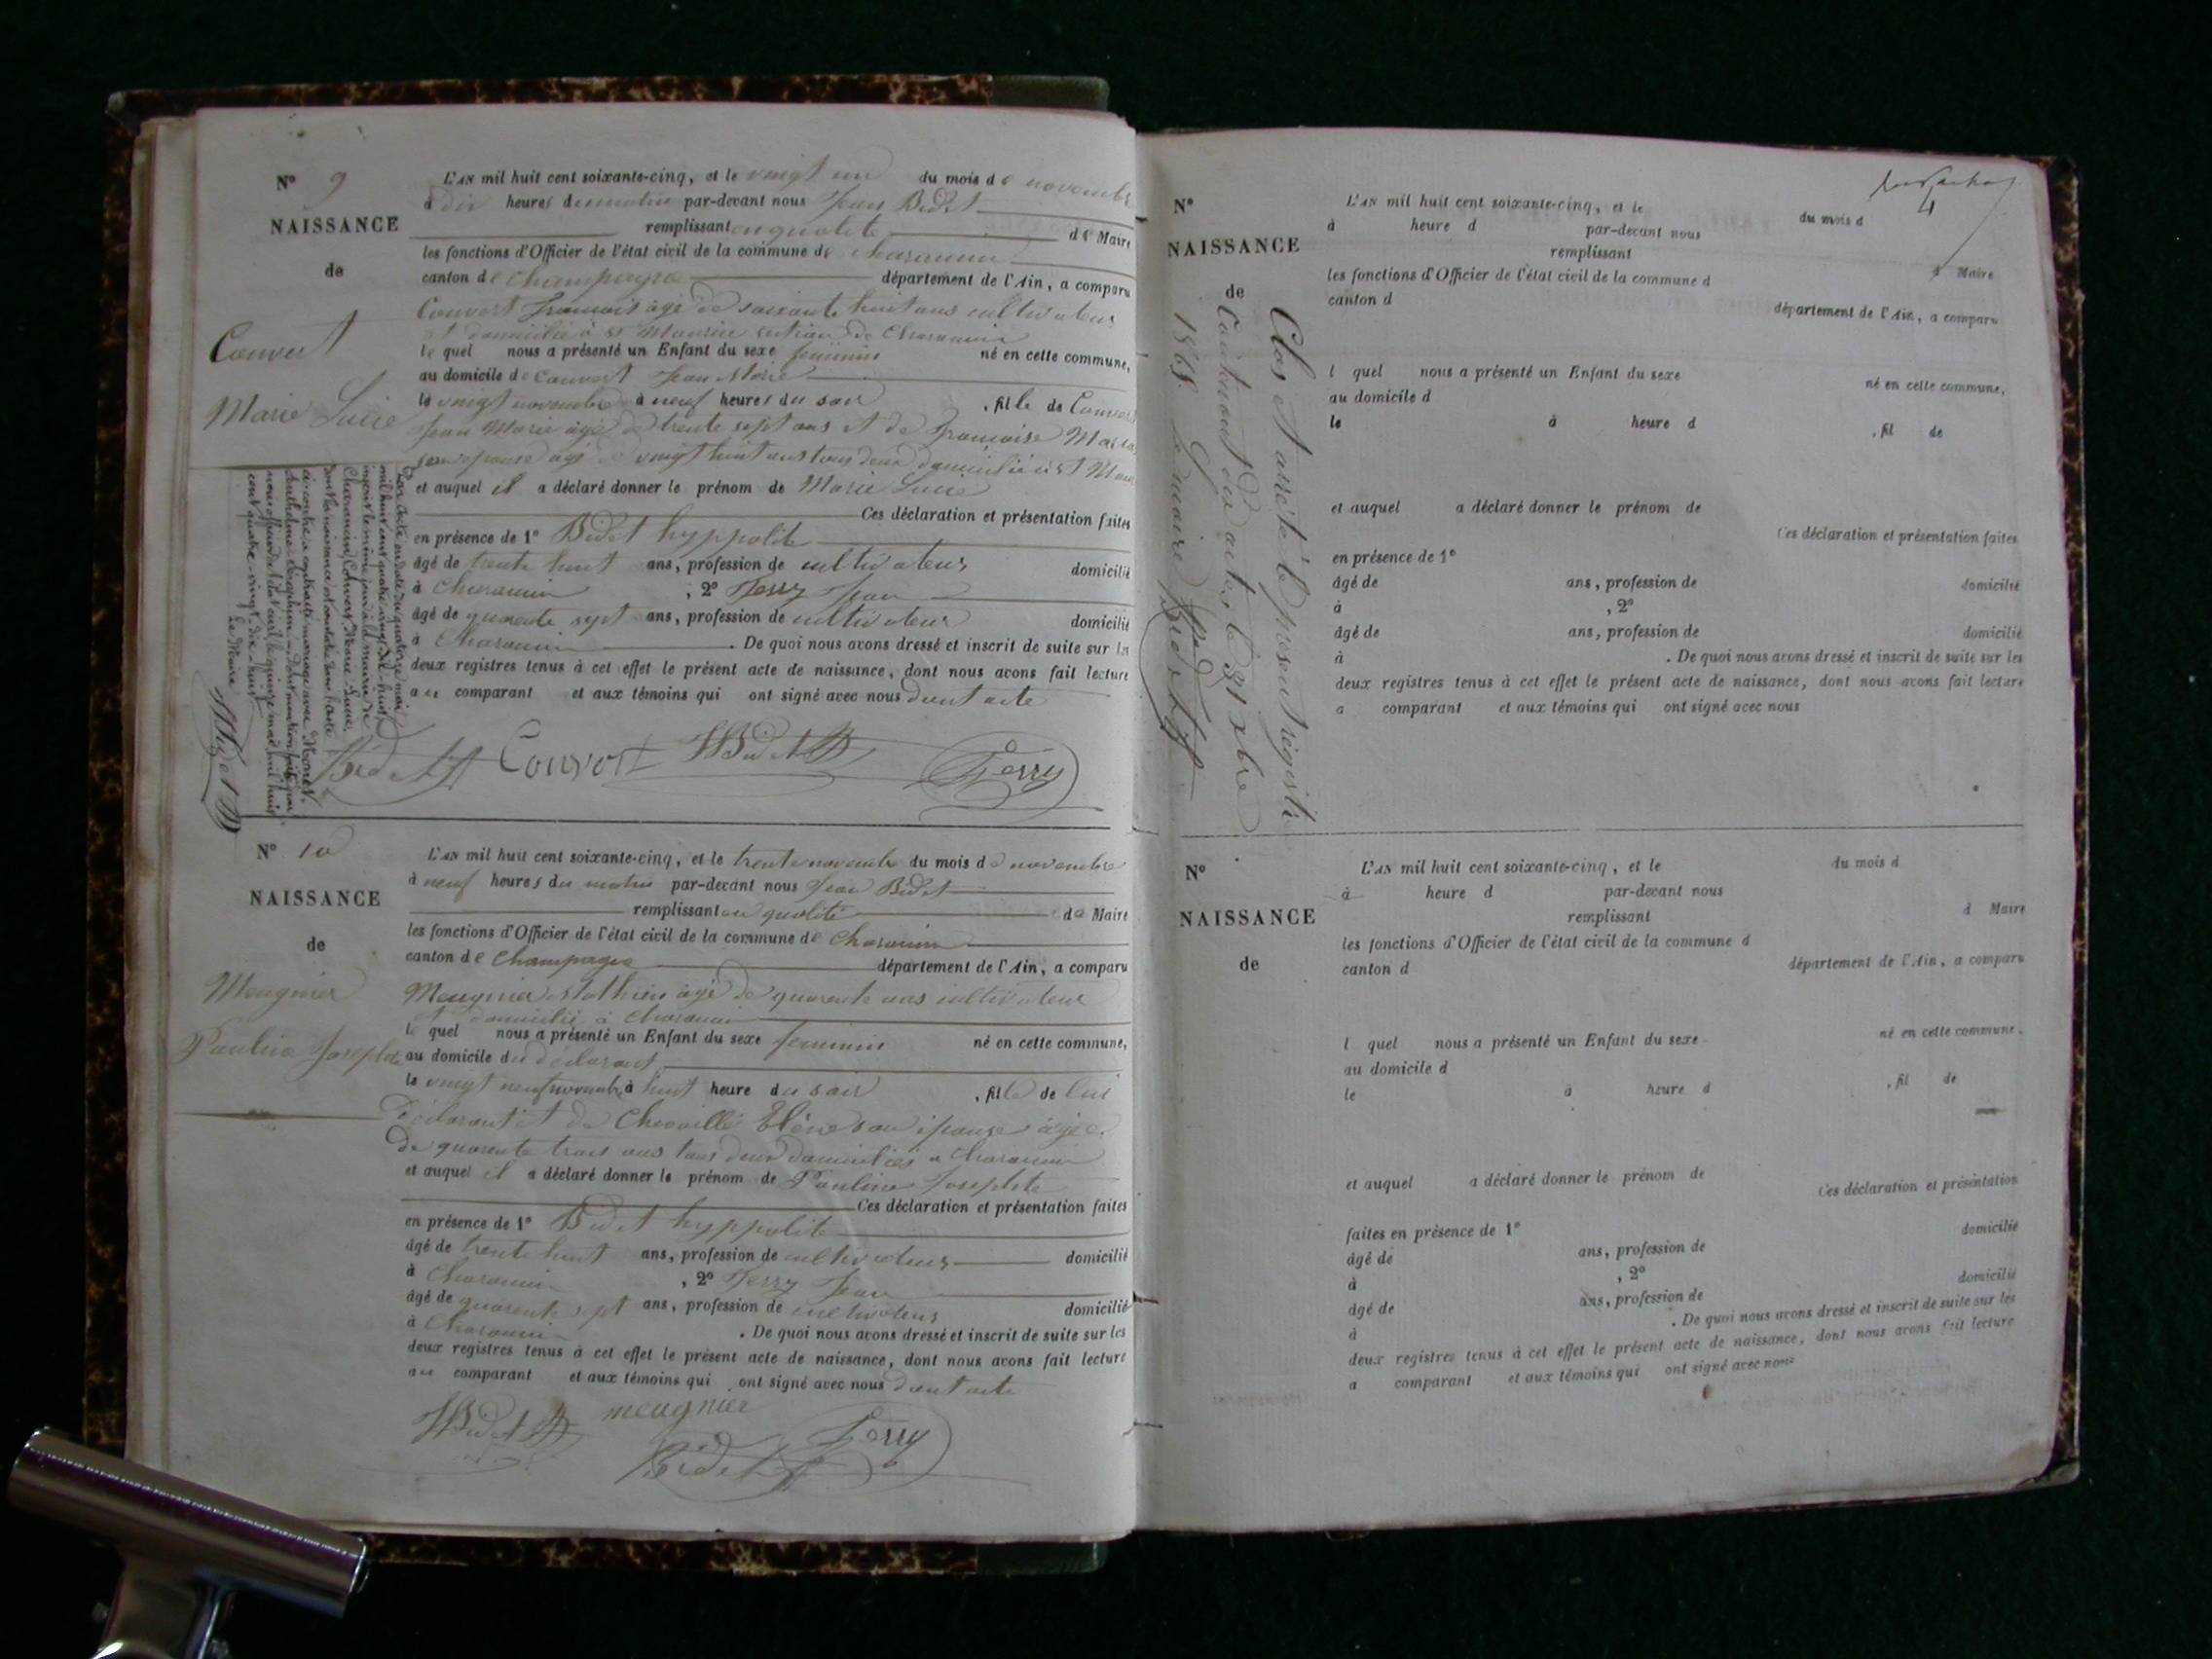 N° 9
NAISSANCE
de
Convert
Marie Lucie
L'AN mil huit cent soixante-cinq, et le vingt un du mois de novembre
à dix heures du matin par-devant nous Jean Bidet
remplissant en qualité de Maire
les fonctions d'Officier de l'état civil de la commune de Charancin
canton de Champagne département de l'Ain, a comparu
Convert François âgé de soixante huit ans cultivateur
et domicilié à st Maurice section de Charancin
le quel nous a présenté un Enfant du sexe féminin né en cette commune,
au domicile de Convert Jean Marie
le vingt novembre à neuf heures du soir , fille de Convert
Jean Marie âgé de trente sept ans et de Françoise
son épouse âgé de vingt huit ans tous deux domicilié à st
et auquel il a déclaré donner le prénom de Marie Lucie
Ces déclaration et présentation faites
en présence de 1° Bidet hyppolite
âgé de trente huit ans, profession de cultivateur domicilié
à Charancin , 2° Ferry Jean
âgé de quarente sept ans, profession de cultivateur domicilié
à Charancin . De quoi nous avons dressé et inscrit de suite sur les
deux registres tenus à cet effet le présent acte de naissance, dont nous avons fait lecture
au comparant et aux témoins qui ont signé avec nous dont acte
Par acte en date du quatorze mai
mil huit cent quatre-vingt-dix-huit
inscrit le même jour à la mairie de
Charancin, Convert Marie Lucie,
dont la naissance est constatée dans l'acte
ci-contre, a contracté mariage avec
Anthelme dont mention faite par
nous officier de l'état civil, le quinze mai mil huit
cent quatre-vingt-dix-huit
Le Maire
Bidet
Bidet Convert HBidet Ferry
N° 10
NAISSANCE
de
Meugnier
Pauline Josephte
L'AN mil huit cent soixante-cinq, et le trente novembre du mois de novembre
à neuf heures du matin par-devant nous Jean Bidet
remplissant en qualité de Maire
les fonctions d'Officier de l'état civil de la commune de Charancin
canton de Champagne département de l'Ain, a comparu
Meugnier Mathieu âgé de quarente ans cultivateur
domicilié à Charancin
le quel nous a présenté un Enfant du sexe féminin né en cette commune,
au domicile du déclarant
le vingt neuf novembre à huit heure du soir , fille de lui
Déclarant et de Élène son épouse âgée
De quarente trois ans tous deux domiciliés à Charancin
et auquel il a déclaré donner le prénom de Pauline Josephte
Ces déclaration et présentation faites
en présence de 1° Bidet hyppolite
âgé de trente huit ans, profession de cultivateur domicilié
à Charancin , 2° Ferry Jean
âgé de quarente sept ans, profession de cultivateur domicilié
à Charancin . De quoi nous avons dressé et inscrit de suite sur les
deux registres tenus à cet effet le présent acte de naissance, dont nous avons fait lecture
au comparant et aux témoins qui ont signé avec nous dont acte
HBidet meugnier Ferry
Bidet
4
N°
NAISSANCE
de
Clos et arrêté le présent registre
Contenant dix actes le 31 xbre
1865 Le maire Bidet
L'AN mil huit cent soixante-cinq, et le du mois d
à heure d par-devant nous
remplissant d Maire
les fonctions d'Officier de l'état civil de la commune d
canton d département de l'Ain, a comparu
l quel nous a présenté un Enfant du sexe né en cette commune,
au domicile d
le à heure d , fil de
et auquel a déclaré donner le prénom de
Ces déclaration et présentation faites
en présence de 1°
âgé de ans, profession de domicilié
à , 2°
âgé de ans, profession de domicilié
à . De quoi nous avons dressé et inscrit de suite sur les
deux registres tenus à cet effet le présent acte de naissance, dont nous avons fait lecture
a comparant et aux témoins qui ont signé avec nous
N°
NAISSANCE
de
L'AN mil huit cent soixante-cinq, et le du mois d
à heure d par-devant nous
remplissant d Maire
les fonctions d'Officier de l'état civil de la commune d
canton d département de l'Ain, a comparu
l quel nous a présenté un Enfant du sexe né en cette commune,
au domicile d
le à heure d , fil de
et auquel a déclaré donner le prénom de
Ces déclaration et présentation
faites en présence de 1°
âgé de ans, profession de domicilié
à , 2°
âgé de ans, profession de domicilié
à . De quoi nous avons dressé et inscrit de suite sur les
deux registres tenus à cet effet le présent acte de naissance, dont nous avons fait lecture
a comparant et aux témoins qui ont signé avec nous